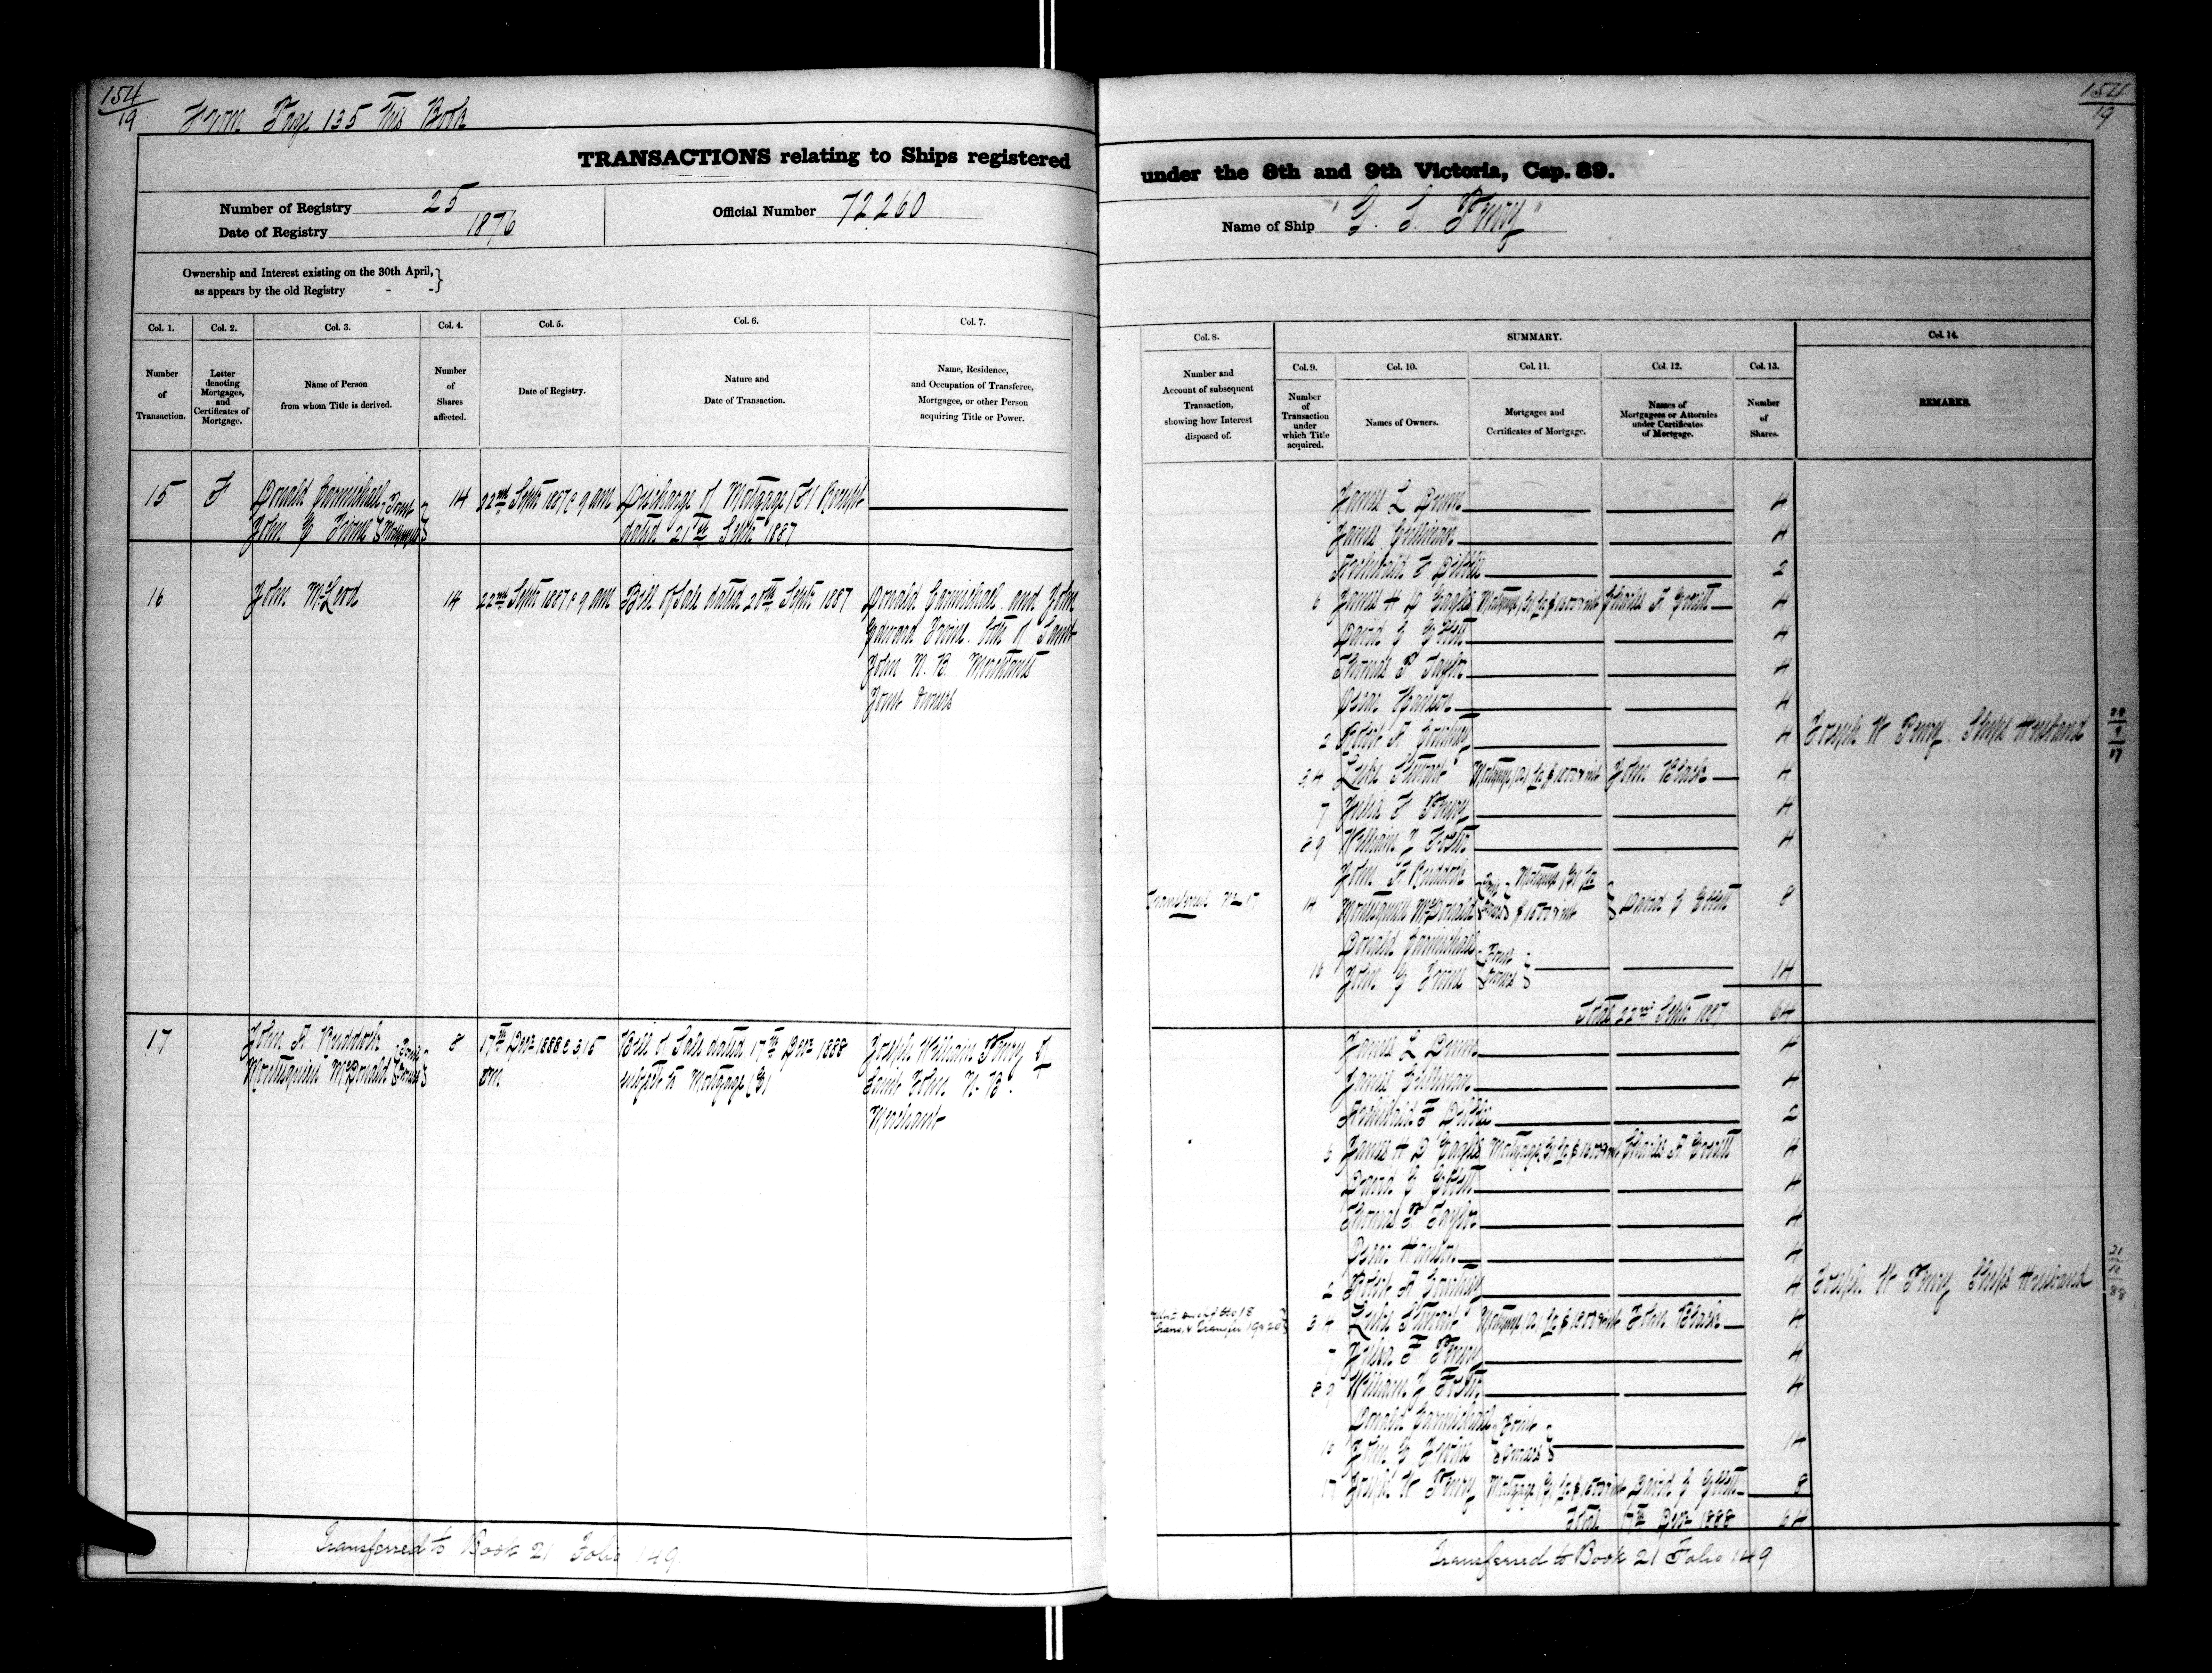 154
19
From Page 135 This Book
TRANSACTIONS relating to Ships registered
Number of Registry 25
Date of Registry 1876
Official Number 72260
Ownership and Interest existing on the 30th April,
as appears by the old Registry - - }
Col. 1.
Number
of
Transaction.
Col. 2.
Letter
denoting
Mortgages,
and
Certificates of
Mortgage.
Col. 3.
Name of Person
from whom Title is derived.
Col. 4.
Number
of
Shares
affected.
Col. 5.
Date of Registry.
Col. 6.
Nature and
Date of Transaction.
Col. 7.
Name, Residence,
and Occupation of Transferee,
Mortgagee, or other Person
acquiring Title or Power.
15 F Donald Carmichael Joint 14 22nd Septr 1887 @ 9 am Discharge of Mortgage (F) Receipt
John E Irvine Mortgagees dated 21st Septr 1887
16 John McLeod 14 22nd Septr 1887 @ 9 am Bill of Sale dated 20th Septr 1887 Donald Carmichael and John
Edward Irvine both of Saint
John N. B. Merchants
Joint Owners
17 John A Ruddock Joint 8 17th Decr 1888 @ 3,15 Bill of Sale dated 17th Decr 1888 Joseph William Perry of
Montesquieu McDonald Owners pm subject to Mortgage (E) Saint John N. B.
Merchant
Transferred to Book 21 Folio 149.
154
19
under the 8th and 9th Victoria, Cap. 89.
Name of Ship "G. S. Penry"
Col. 8.
Number and
Account of subsequent
Transaction,
showing how Interest
disposed of.
SUMMARY.
Col. 9.
Number
of
Transaction
under
which Title
acquired.
Col. 10.
Names of Owners.
Col. 11.
Mortgages and
Certificates of Mortgage.
Col. 12.
Names of
Mortgagees or Attornies
under Certificates
of Mortgage.
Col. 13.
Number
of
Shares.
Col. 14.
REMARKS.
James L Dunn 4
James Sullivan 4
Archibald F 2
6 James H D Eagles Mortgage (B) for $1500 & int Charles A Everett 4
David E 4
Thomas P Taylor 4
Oscar Hanson 4
2 Robert A Courtney 4 Joseph W Penry. Ships Husband
3,4 Luke Stewart Mortgage (A) for $1200 & int John Black 4
7 Julia F Penry 4
8 9 William E Foster 4
John A Ruddock Joint Mortgage (E) for
Transferred No 17 14 Montesquieu McDonald Owners $1500 & int David E 8
Donald Carmichael Joint
16 John E Irvine Owners 14
Total 22nd Septr 1887 64
James L Dunn 4
James Sullivan 4
Archibald F 2
6 James H D Eagles Mortgage (B) for $1500 & int Charles A Everett 4
David E 4
Thomas P Taylor 4
Oscar Hanson 4
2 Robert A Courtney 4 Joseph W Penry Ships Husband
3 4 Luke Stewart Mortgage (A) for $1200 & int John Black 4
7 Julia F Penry 4
8 9 William E Foster 4
Donald Carmichael Joint
16 John E Irvine Owners 14
17 Joseph W Penry Mortgage (E) for $1500 & int David E 8
Total 17th Decr 1888 64
Transferred to Book 21 Folio 149